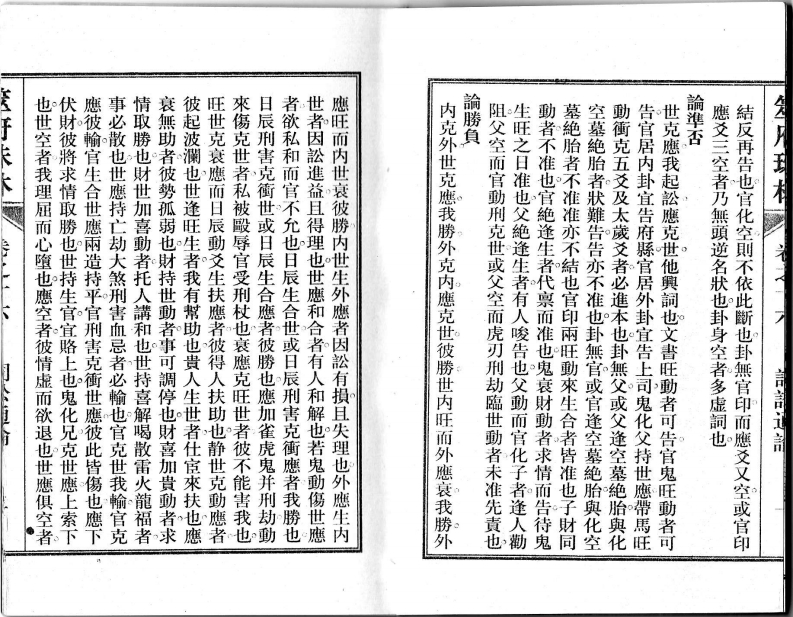 結反再告也官化空則不依此斷也卦無官印而應爻又空或官印
應爻三空者乃無頭逆名狀也卦身空者多虛詞也
論準否
世克應我起訟應克世他興詞也文書旺動者可告官鬼旺動者可
告官居內卦宜告府縣官居外卦宜告上司鬼化父持世應帶馬旺
動衝克五爻及太歲爻者必進本也卦無父或父逢空墓絶胎與化
空墓絶胎者狀難告告亦不准也卦無官或官逢空墓絶胎與化空
墓絶胎者不准准亦不結也官印兩旺動來生合者皆准也子財同
動者不准也官絶逢生者代禀而准也鬼衰財動者求情而告待鬼
生旺之日准也父絶逢生者有人唆告也父動而官化子者逢人勸
阻父空而官動刑克世或父空而虎刃刑劫臨世動者未准先責也
論勝負
內克外世克應我勝外克內應克世彼勝世內旺而外應衰我勝外
應旺而內世衰彼勝內世生外應者因訟有損且失理也外應生內
世者因訟進益且得理也世應和合者有人和解也若鬼動傷世應
者欲私和而官不允也日辰生合世或日辰刑害克衝應者我勝也
日辰刑害克衝世或日辰生合應者彼勝也應加雀虎鬼并刑劫動
來傷克世者私被毆辱官受刑杖也衰應克旺世者彼不能害我也
旺世克衰應而日辰動爻生扶應者彼得人扶助也静世克動應者
彼起波瀾也世逢旺生者我有幫助也貴人生世者仕宦來扶也應
衰無助者彼勢孤弱也財持世動者事可調停也財喜加貴動者求
情取勝也財世加喜動者托人講和也世持喜解喝散雷火龍福者
事必散也世應持亡劫大煞刑害血忌者必輸也官克世我輸官克
應彼輸官生合世應兩造持平官刑害克衝世應彼此皆傷也應下
伏財彼將求情取勝也世持生官官宜賂上也鬼化兄克世應上索下
也世空者我理屈而心墮也應空者彼情虛而欲退也世應俱空者